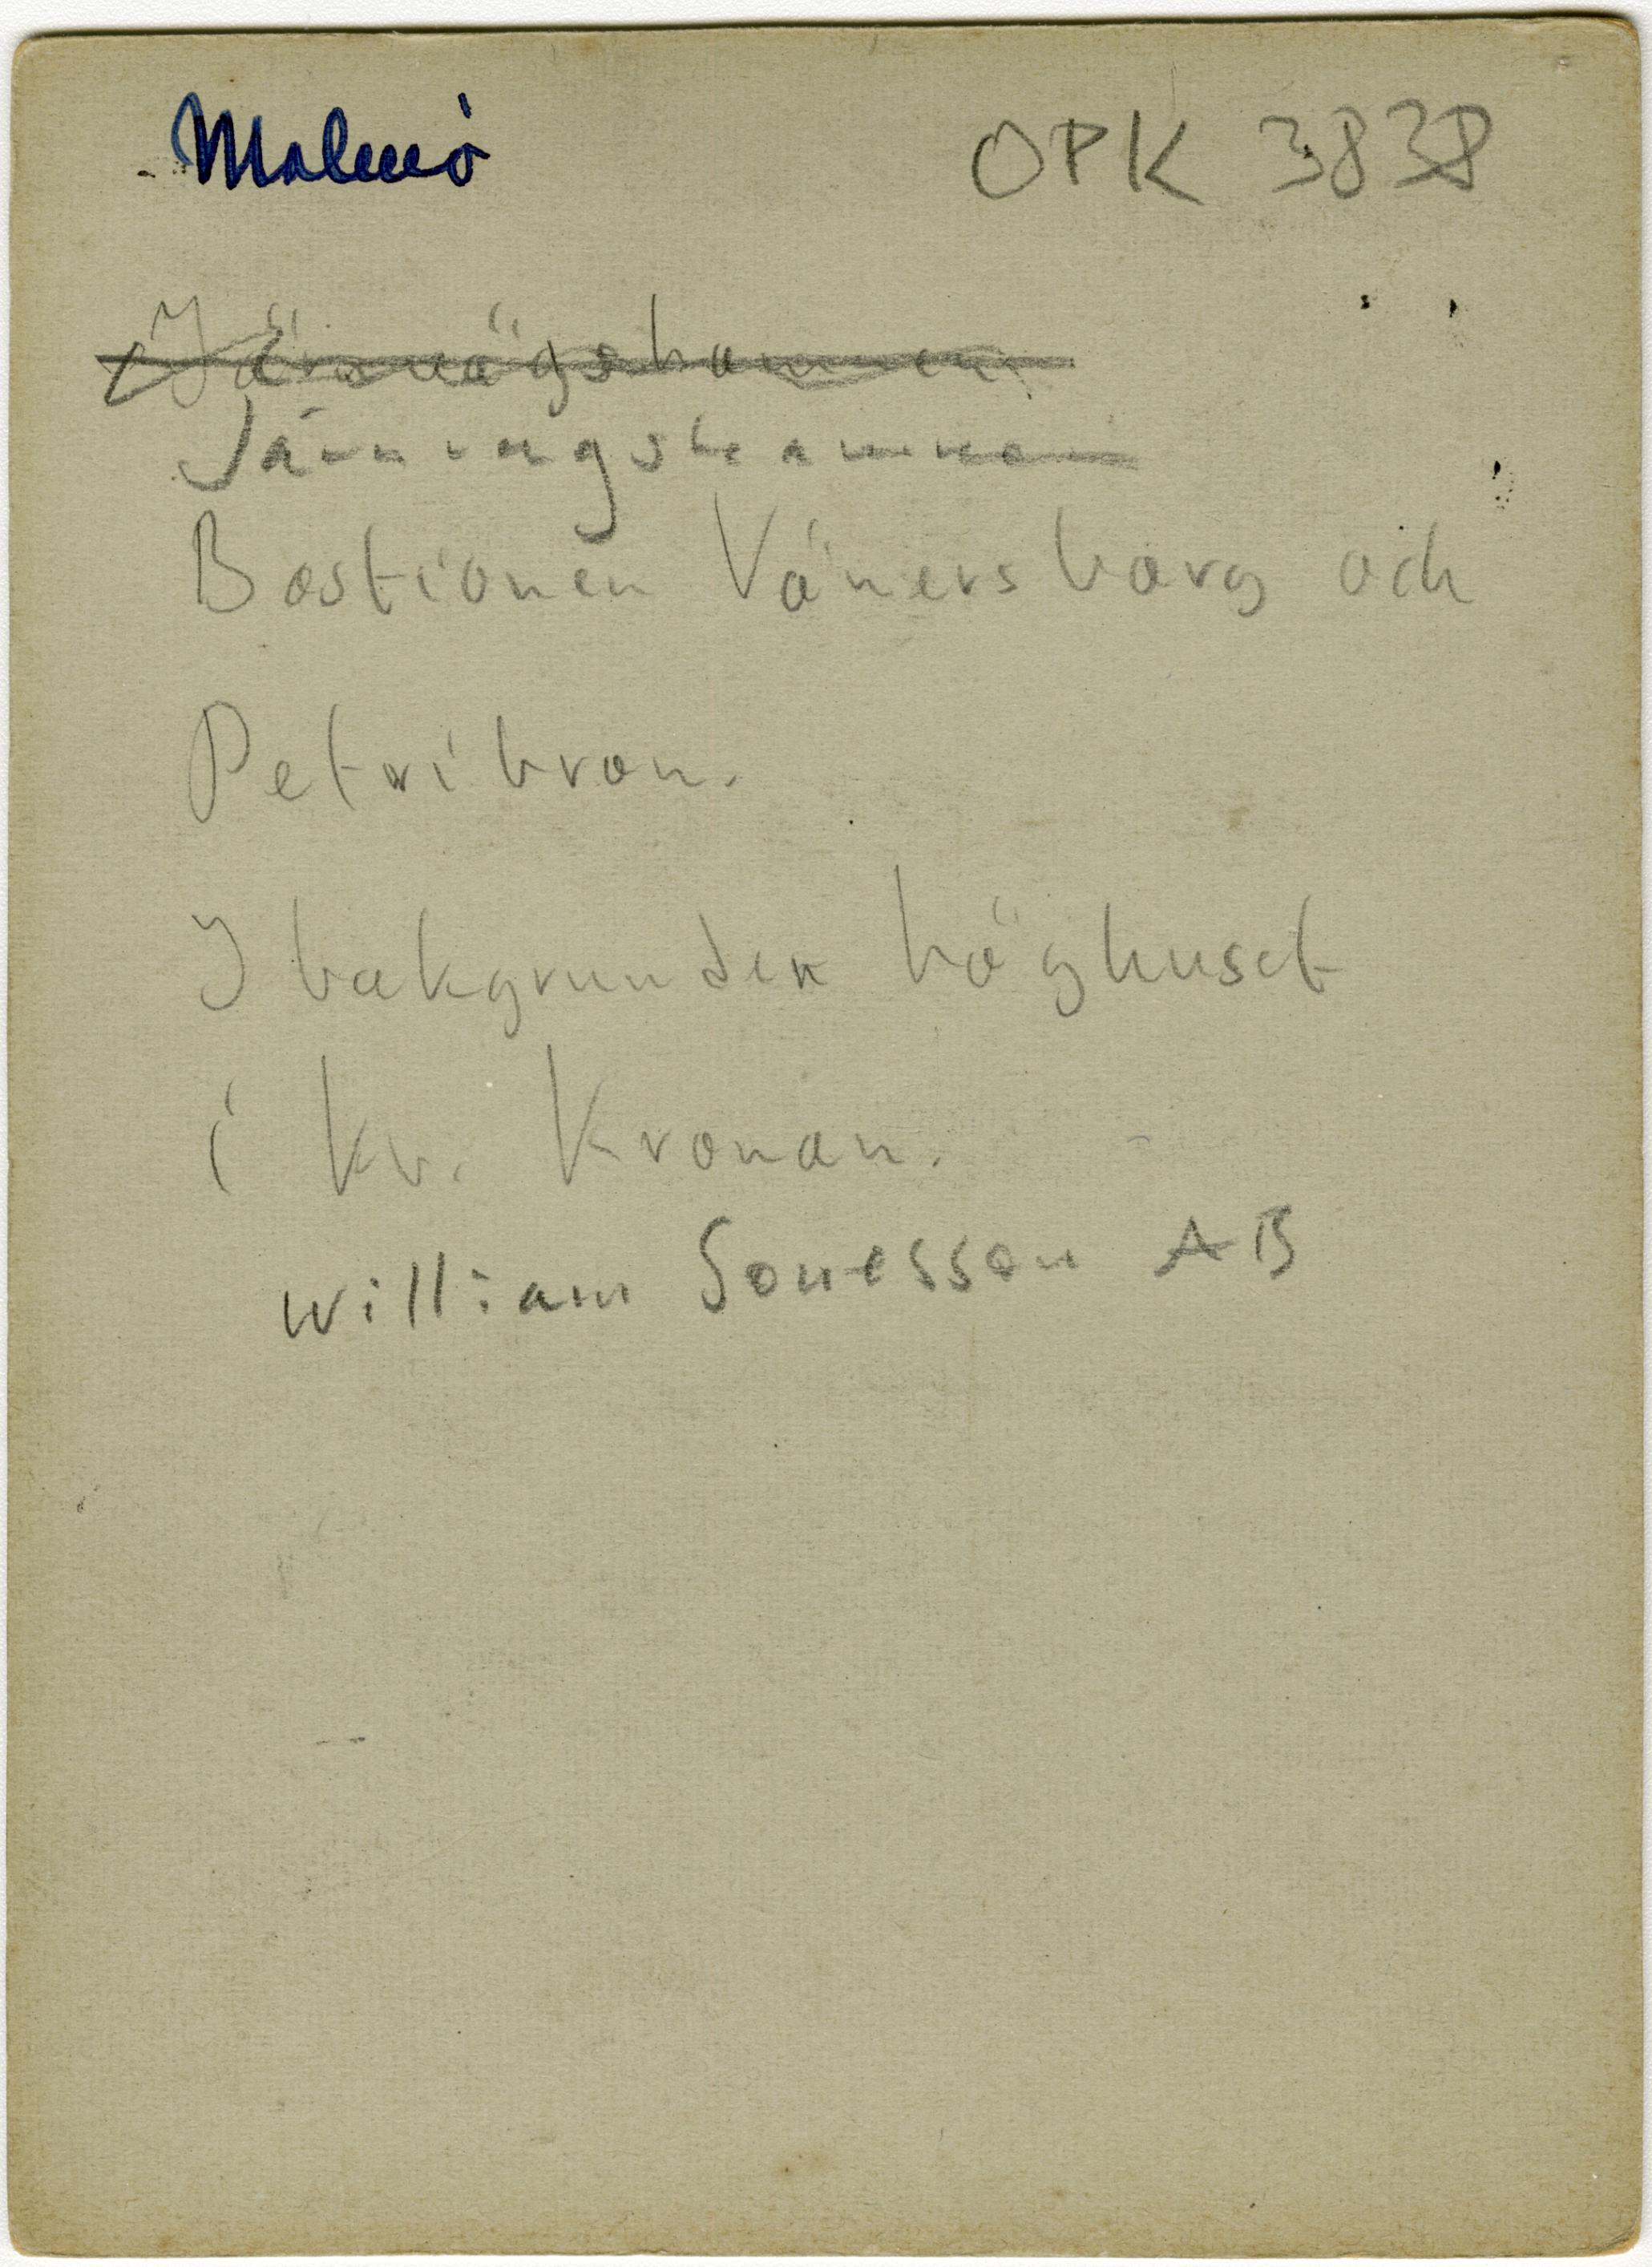 Malmö OPK 3838
Järnvägshamnen
Järnvagshamnen
Bastionen Vänersborg och
Petribron.
I bakgrunden höghuset
i kv. Kronan.
William Sonesson AB